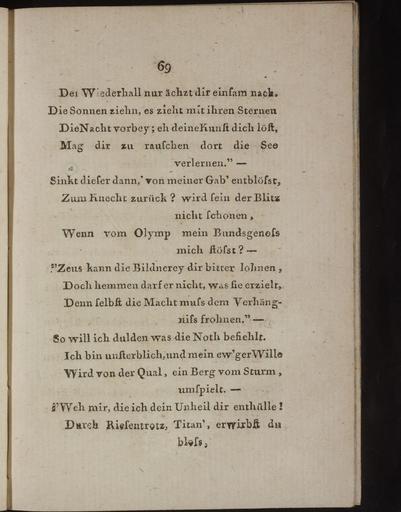 69
Der Wiederhall nur ächzt dir einſam nach.
Die Sonnen ziehn, es zieht mit ihren Sternen
Die Nacht vorbey; eh deine Kunſt dich löſt,
Mag dir zu rauſchen dort die See
verlernen.” —
Sinkt dieſer dann, von meiner Gab’ entblöſst,
Zum Knecht zurück? wird ſein der Blitz
nicht ſchonen,
Wenn vom Olymp mein Bundsgenoſs
mich ſtöſst? —
”Zeus kann die Bildnerey dir bitter lohnen,
Doch hemmen darf er nicht, was ſie erzielt,
Denn ſelbſt die Macht muſs dem Verhäng-
niſs frohnen.” —
So will ich dulden was die Noth befiehlt.
Ich bin unſterblich, und mein ew’ger Wille
Wird von der Qual, ein Berg vom Sturm,
umſpielt. —
”Weh mir, die ich dein Unheil dir enthülle!
Durch Rieſentrotz, Titan’, erwirbſt du
bloſs,